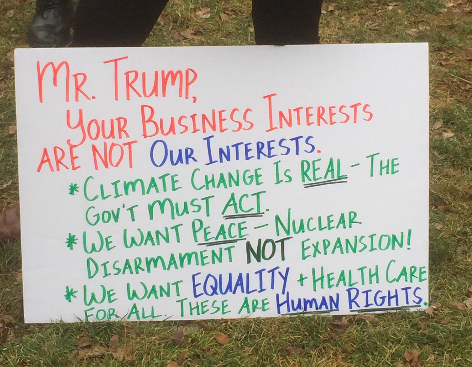 MR. TRUMP,
YOUR BUSINESS INTERESTS
ARE NOT OUR INTERESTS.
* CLIMATE CHANGE IS REAL - THE
GOV'T MUST ACT.
* WE WANT PEACE - NUCLEAR
DISARMAMENT NOT EXPANSION!
* WE WANT EQUALITY + HEALTH CARE
FOR ALL. THESE ARE HUMAN RIGHTS.